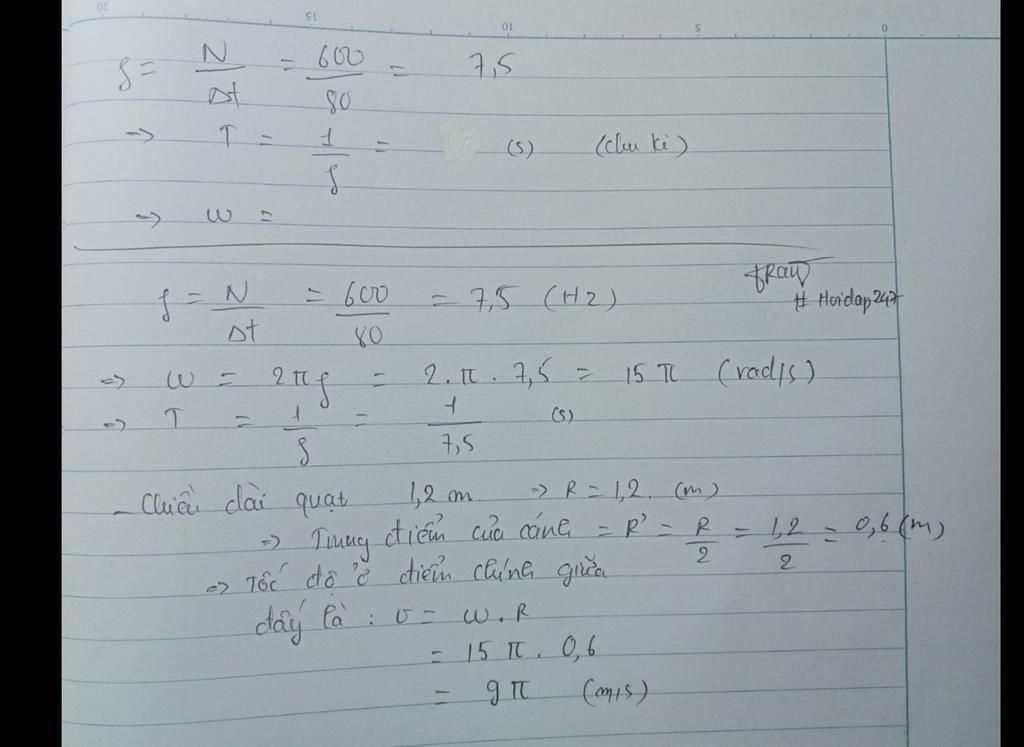 20 15 10 5 0
f = N/Δt = 600/80 = 7,5
=> T = 1/f = (s) (chu kì)
=> ω =
#Hoidap247
f = N/Δt = 600/80 = 7,5 (Hz)
=> ω = 2πf = 2.π.7,5 = 15π (rad/s)
=> T = 1/f = 1/7,5 (s)
- Chiều dài quạt 1,2 m. => R = 1,2. (m)
=> Trung điểm của cánh = R' = R/2 = 1,2/2 = 0,6 (m)
=> Tốc độ ở điểm chính giữa
đấy là : v = ω.R
= 15π. 0,6
= 9π (m/s)